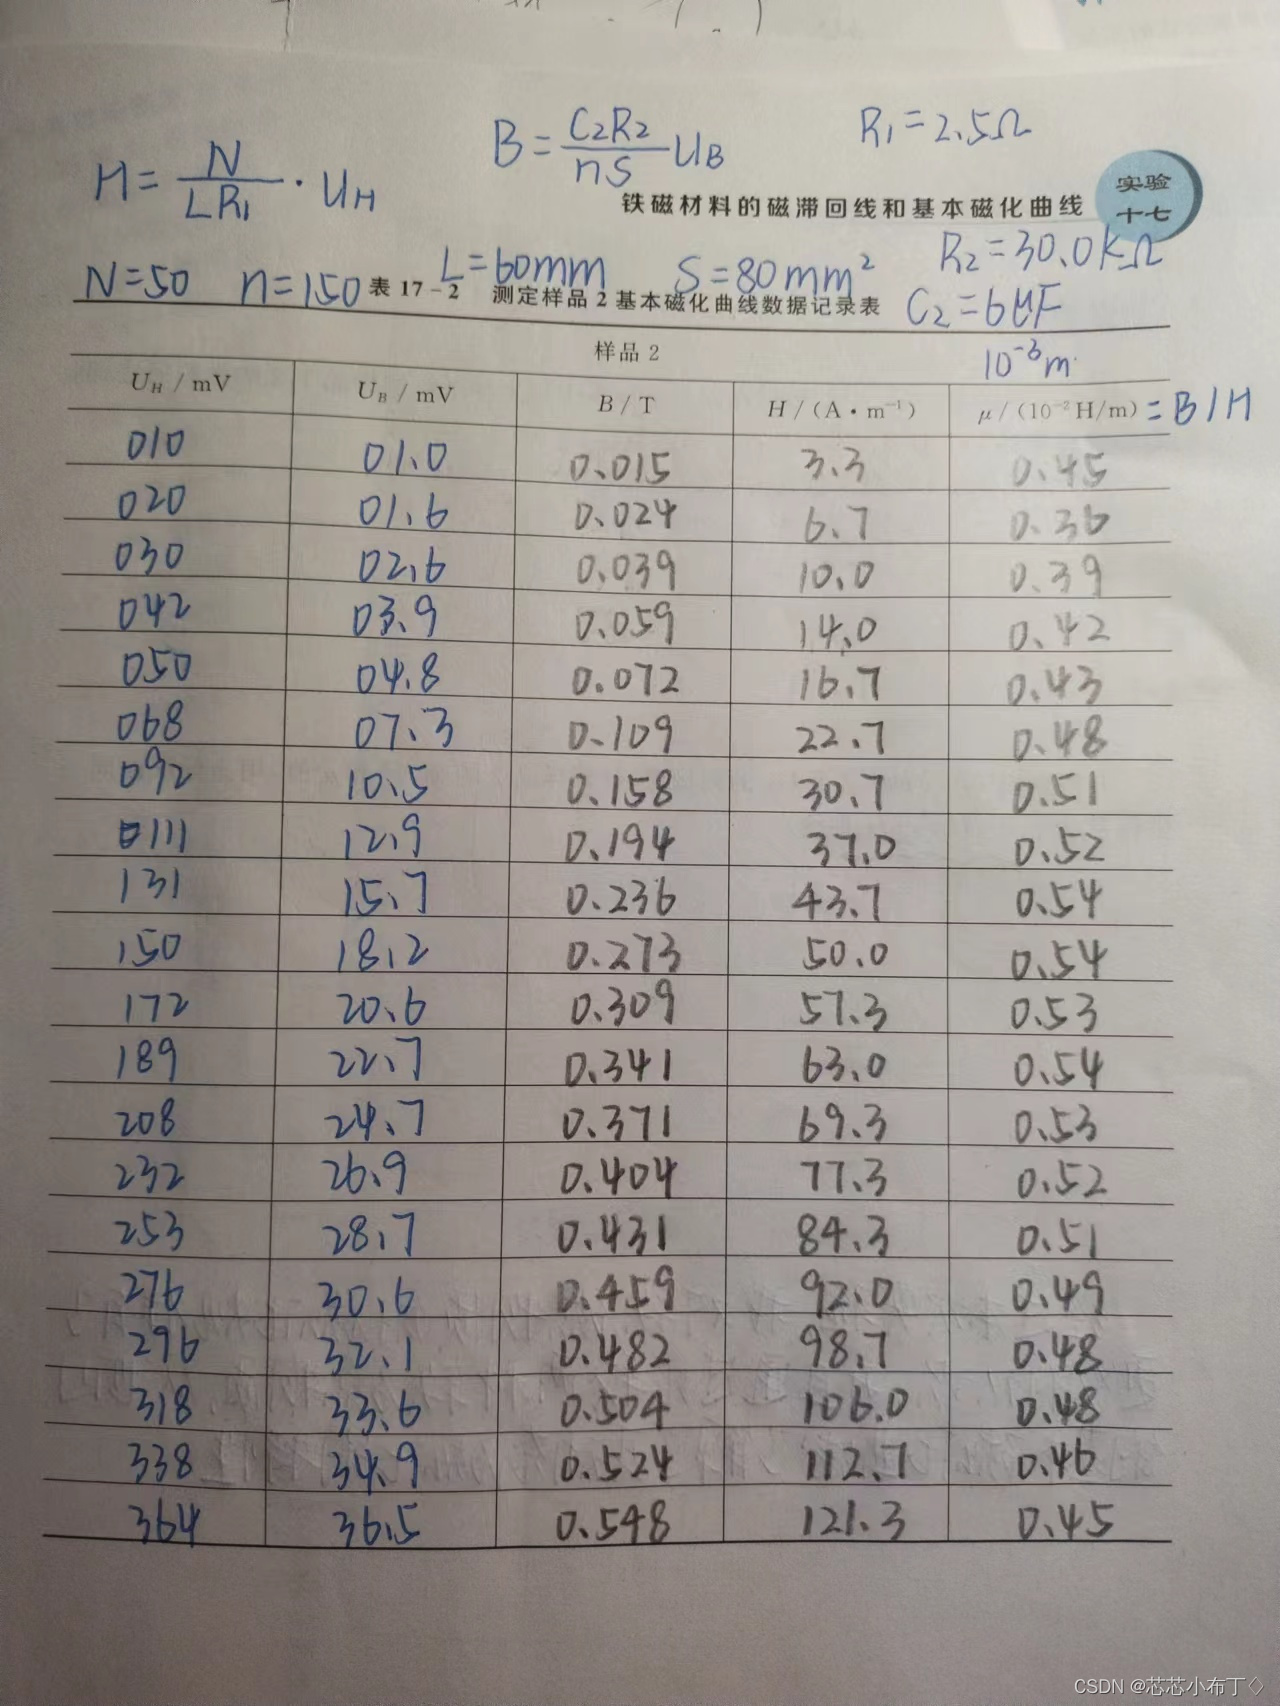 H = N/LR₁ · U_H
B = C₂R₂/nS U_B
R₁ = 2.5Ω
实验十七
铁磁材料的磁滞回线和基本磁化曲线
R₂ = 30.0kΩ
N=50 n=150 L=60mm S=80mm²
表 17-2 测定样品 2 基本磁化曲线数据记录表
C₂=6μF
样品 2
10⁻³m
U_H / mV U_B / mV B / T H / (A·m⁻¹) μ / (10⁻² H/m) = B/H
010 01.0 0.015 3.3 0.45
020 01.6 0.024 6.7 0.36
030 02.6 0.039 10.0 0.39
042 03.9 0.059 14.0 0.42
050 04.8 0.072 16.7 0.43
068 07.3 0.109 22.7 0.48
092 10.5 0.158 30.7 0.51
0111 12.9 0.194 37.0 0.52
131 15.7 0.236 43.7 0.54
150 18.2 0.273 50.0 0.54
172 20.6 0.309 57.3 0.53
189 22.7 0.341 63.0 0.54
208 24.7 0.371 69.3 0.53
232 26.9 0.404 77.3 0.52
253 28.7 0.431 84.3 0.51
276 30.6 0.459 92.0 0.49
296 32.1 0.482 98.7 0.48
318 33.6 0.504 106.0 0.48
338 34.9 0.524 112.7 0.46
364 36.5 0.548 121.3 0.45
CSDN @芯芯小布丁◇